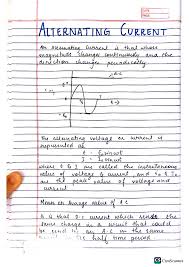 DATE
PAGE
ALTERNATING CURRENT
An alternating current is that whose
magnitude changes continuously and the
direction changes periodically
The alternating voltage or current is
represented as
where E & I are called the instantaneous
value of voltage & current and E₀ & I₀
are the peak value of voltage and
current
Mean or Average value of A.C
It is that D.C current which sends the
same charge in a circuit that could
be send by an A.C in the same
half time period
CamScanner